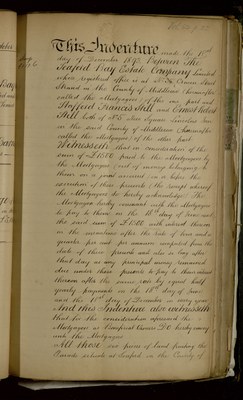 This Indenture made the
day of December 1892 Between The
Seaford Bay Estate Company Limited
whose registered office is at
Strand in the County of Middlesex (hereinafter
called the Mortgagors) of the one part and
Stafford Francis Still and
Still both of No 5 New Square Lincolns Inn
in the said County of Middlesex (hereinafter
called the Mortgagees) of the other part
Witnesseth that in consideration of the
sum of £1500 paid to the Mortgagors by
the Mortgagees out of moneys belonging to
them on a joint account on or before the
execution of these presents (the receipt whereof
the Mortgagors do hereby acknowledge) The
Mortgagors hereby covenant with the Mortgagees
to pay to them on the day of June next
the said sum of £1500 with interest thereon
in the meantime after the rate of four and a
quarter per cent per annum computed from the
date of these presents and also so long after
that day as any principal money remains
due under these presents to pay to them interest
thereon after the same rate by equal half
yearly payments on the day of June
and the day of December in every year
And this Indenture also witnesseth
that for the consideration aforesaid the
Mortgagors as Beneficial Owners Do hereby convey
unto the Mortgagees
All those pieces of land fronting the
Parade at Seaford in the County of